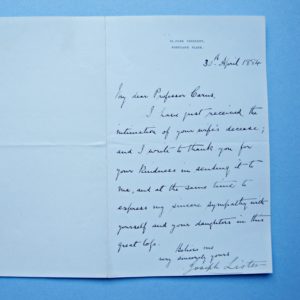 12, PARK CRESCENT,
PORTLAND PLACE.
30th April 1884
My dear Professor Carus,
I have just received the
intimation of your wife's decease;
and I write to thank you for
your kindness in sending it to
me, and at the same time to
express my sincere sympathy with
yourself and your daughters in this
great loss.
Believe me
very sincerely yours
Joseph Lister